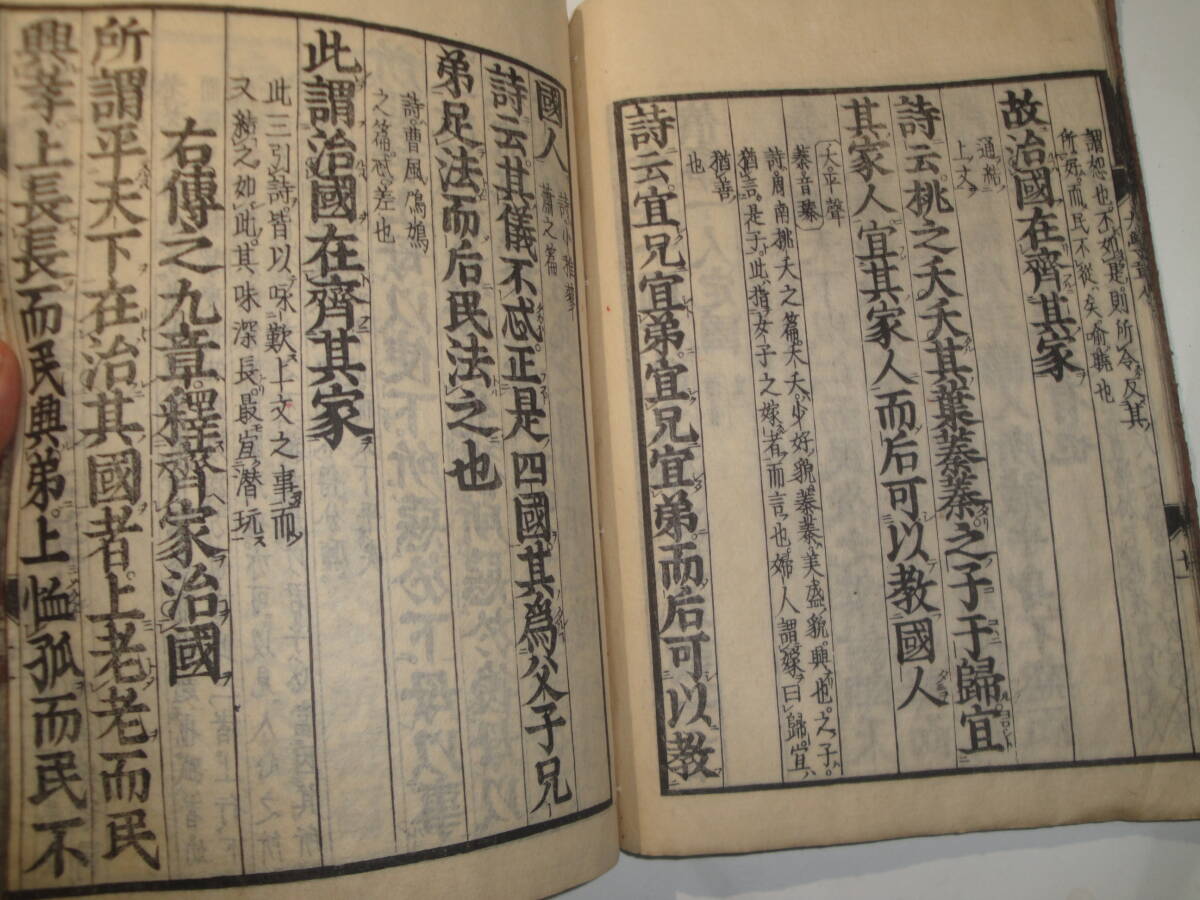 謂恕也不如是則所令反其
所好而民不從矣喻曉也
故治國在齊其家
通結
上文
詩云桃之夭夭其葉蓁蓁之子于歸宜
其家人宜其家人而后可以教國人
夭平聲
蓁音臻
詩周南桃夭之篇夭夭少好貌蓁蓁美盛貌興也之子
猶言是子此指女子之嫁者而言也婦人謂嫁曰歸宜
猶善
也
詩云宜兄宜弟宜兄宜弟而后可以教
國人
詩小雅蓼
蕭之篇
詩云其儀不忒正是四國其爲父子兄
弟足法而后民法之也
詩曹風鳲鳩
之篇忒差也
此謂治國在齊其家
此三引詩皆以咏歎上文之事而
又結之如此其味深長最宜潛玩
右傳之九章釋齊家治國
所謂平天下在治其國者上老老而民
興孝上長長而民興弟上恤孤而民不